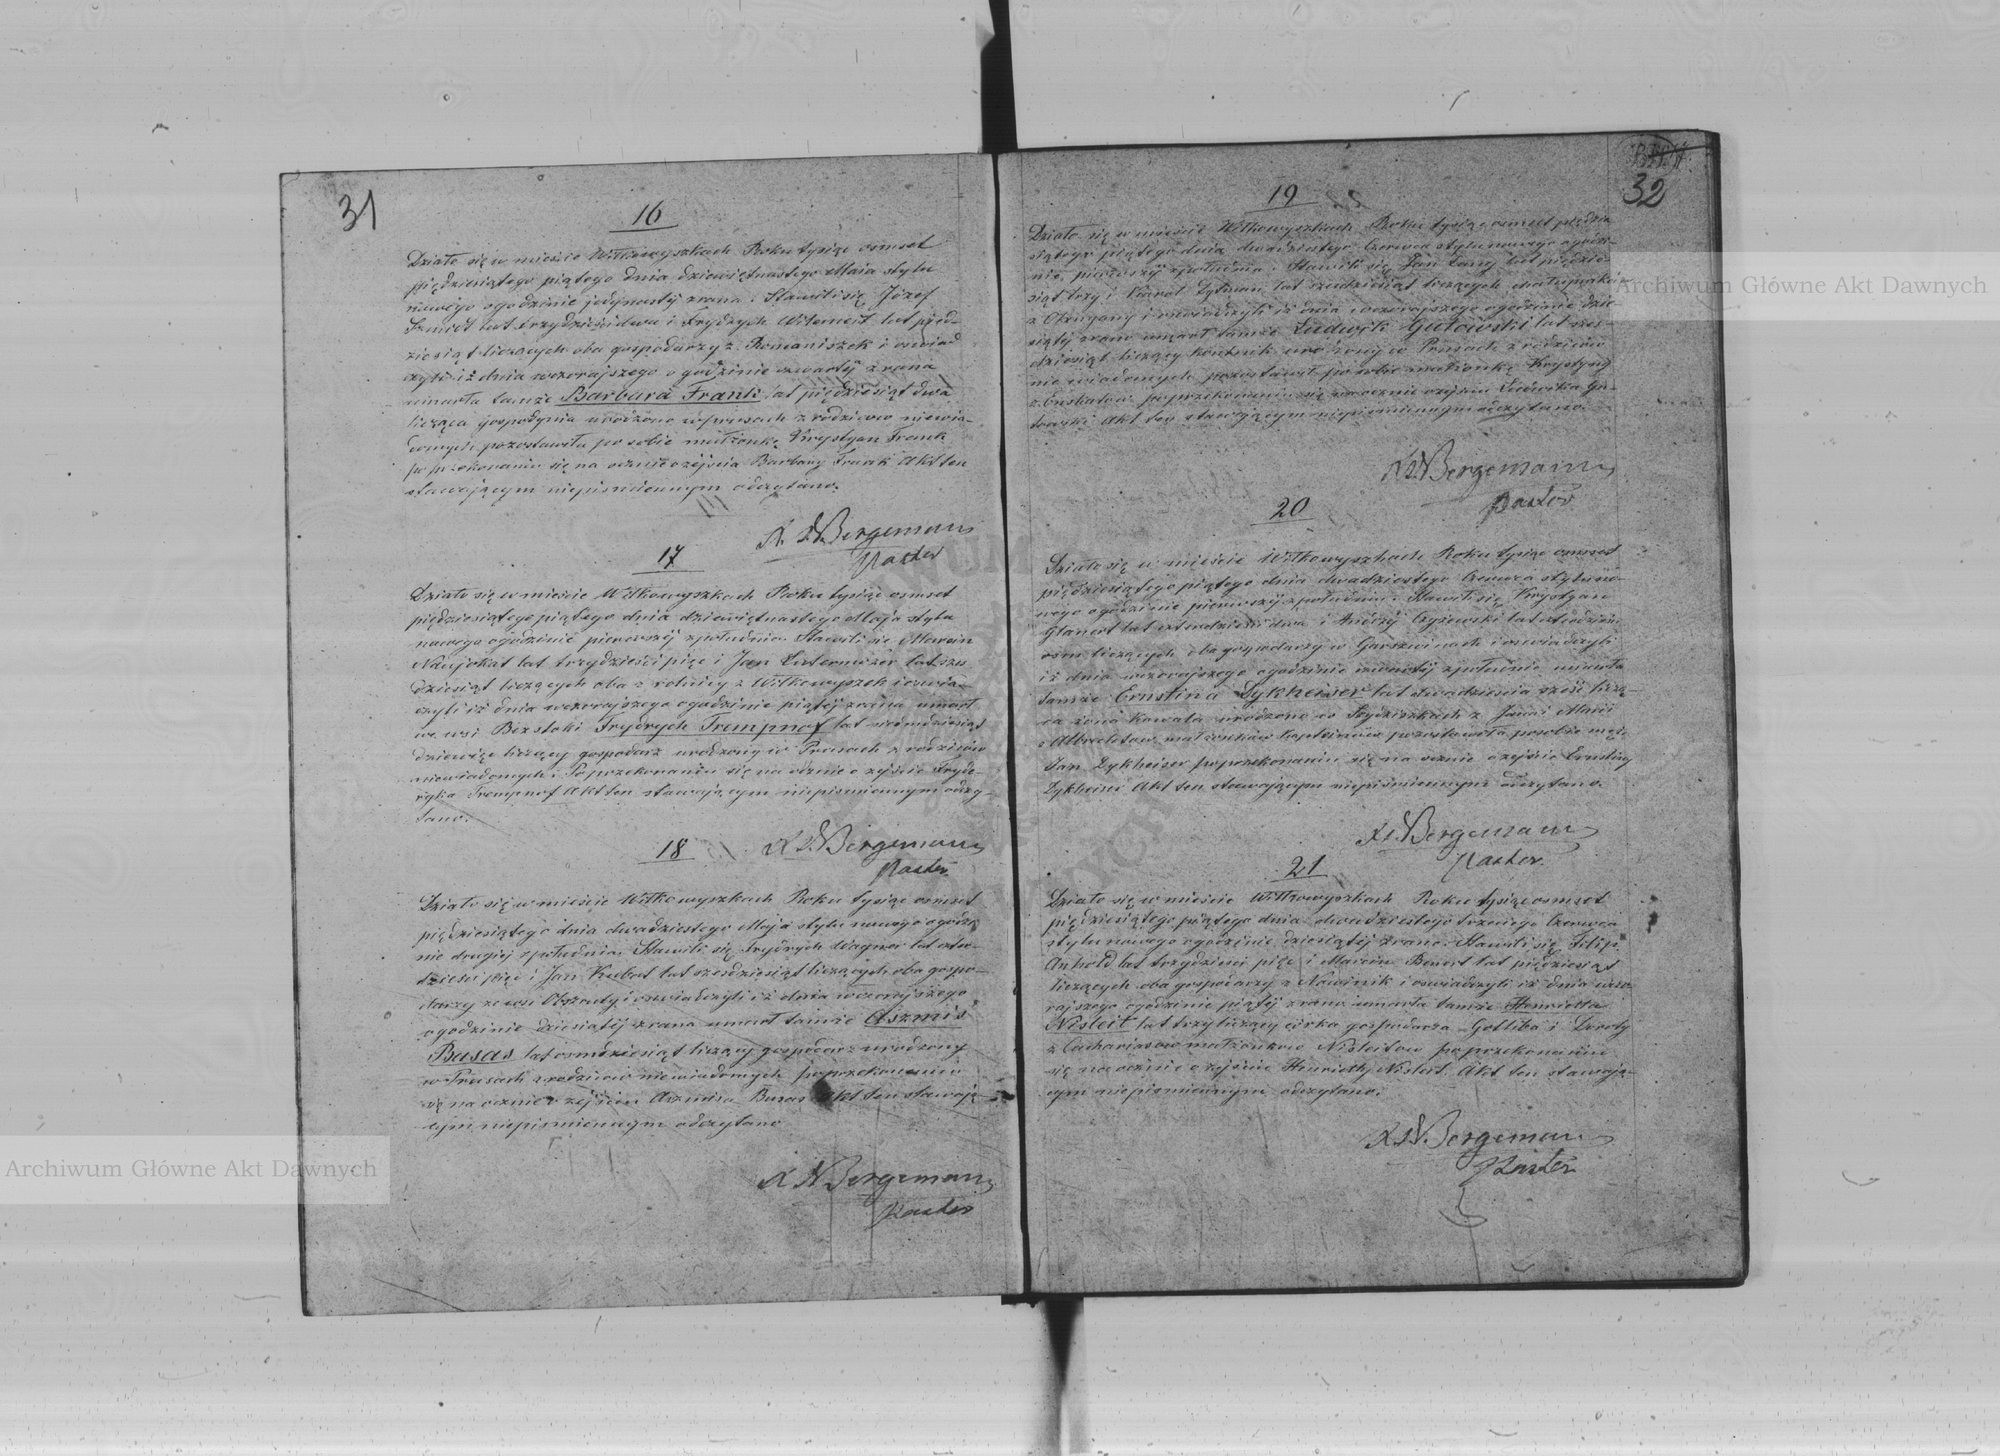 31
16
Działo się w mieście Wiłkowyszkach Roku tysiąc osmset
pięćdziesiątego piątego dnia dziewiętnastego Maia stylu
nowego ogodzinie jedynastéj zrana. Stawili się Józef
lat trzydzieści dwa i Frydrych lat pięć-
ziesiąt liczących oba gospodarzy z Romaniszek i oswiad
czyli iż dnia wczorajszego o godzinie czwartéj zrana
umarła tamże Barbara Frank lat pięćdziesiąt dwa
licząca gospodynia urodzona w prusach z rodziców niewia-
domych pozostawiła po sobie małżonka Krystyan Frank
po przekonaniu się na ocznie o zejściu Barbary Frank Akt ten
stawającym niepismiennym odczytano.
Bergemann
Pastor
17
Działo się w mieście Wiłkowyszkach Roku tysiąc osmset
pięćdziesiątego piątego dnia dziewiętnastego Maja stylu
nowego ogodzinie pierwszéj zpołudnia. Stawili się Marcin
Naujokat lat trzydzieści pięć i Jan lat sześ
dziesiąt liczących oba z rolnicy z Wiłkowyszek i oswia-
czyli iż dnia wczorajszego ogodzinie piątéj zrana umarł
we wsi Frydrych Trempnof lat siedmdziesiąt
dziewięć liczący gospodarz urodzony w Prusach z rodziców
niewiadomych. Po przekonaniu się na ocznie o zejściu Fryde-
ryka Trempnof Akt ten stawającym niepismiennym odczy-
tano.
Bergemann
Pastor
18
Działo się w mieście Wiłkowyszkach Roku tysiąc osmset
pięćdziesiątego dnia dwadziestego Maja stylu nowego ogodzi
nie drugiej zpołudnia. Stawili się Frydrych Wagner lat czter-
dzieści pięć i Jan Kubat lat sześdziesiąt liczących oba gospo-
darzy ze wsi Obszruty i oswiadczyli iż dnia wczorajszego
ogodzinie dziesiątéj zrana umarł tamże Aszmis
Busas lat osmdziesiąt liczący gospodarz urodzony
w Prusach z rodziców niewiadomych po przekonaniu
się na ocznie o zejściu Aszmisa Busas Akt ten stawają-
cym niepismiennym odczytano
Bergemann
Pastor
32
19
Działo się w mieście Wiłkowyszkach Roku tysiąc osmset pięćdzie
siątego piątego dnia dwadziestego Czerwca stylu nowego ogodzi-
nie pierwszéj zpołudnia. Stawili się Jan lat pięćdzie-
siąt trzy i Karol lat liczących
z i oswiadczyli iż dnia wczorajszego ogodzinie dzie-
siątéj zrana umarł tamże Ludwik Gutowski lat sześ-
dziesiąt liczący urodzony w Prusach z rodziców
nie wiadomych pozostawił po sobie małżonkę Krystynę
po przekonaniu się na ocznie o zejściu Ludwika Gu-
towski Akt ten stawającym niepismiennym odczytano.
Bergemann
Pastor
20
Działo się w mieście Wiłkowyszkach Roku tysiąc osmset
pięćdziesiątego piątego dnia dwadziestego Czerwca stylu no-
wego ogodzinie pierwszéj zpołudnia. Stawili się Krystyan
lat czterdzieści dwa i Andrzéj lat
osm liczących oba gospodarzy w i oswiadczyli
iż dnia wczorajszego ogodzinie czwartéj zpołudnia umarła
tamże Ernstina Zykheiser lat dwadzieścia sześć liczą-
ca żona kowala urodzona w z Jana i Marii
z małżonków pozostawiła po sobie męża
Jan Zykheiser po przekonaniu się na ocznie o zejściu Ernstiny
Akt ten stawającym niepismiennym odczytano.
Bergemann
Pastor.
21
Działo się w mieście Wiłkowyszkach Roku tysiąc osmset
pięćdziesiątego piątego dnia dwadziestego trzeciego Czerwca
stylu nowego ogodzinie dziesiątéj zrana. Stawili się Filip
lat trzydzieści pięć i Marcin lat pięćdziesiąt
liczących oba gospodarzy z i oswiadczyli iż dnia wczo
rajszego ogodzinie piątéj zrana umarła tamże Henrietta
Nisleit lat trzy licząca córka gospodarza Gotliba i Doroty
z małżonków Nisleitów po przekonaniu
się na ocznie o zejściu Henrietty Nisleit. Akt ten stawają-
cym niepismiennym odczytano.
Bergemann
Pastor
Archiwum Główne Akt Dawnych
Archiwum Główne Akt Dawnych